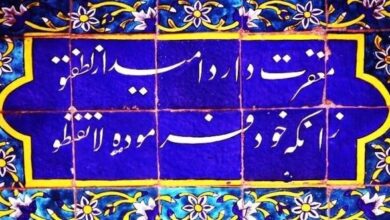 مغفرت دارد امید از لطف تو
زانکه خود فرموده‌ای لاتقنطوا